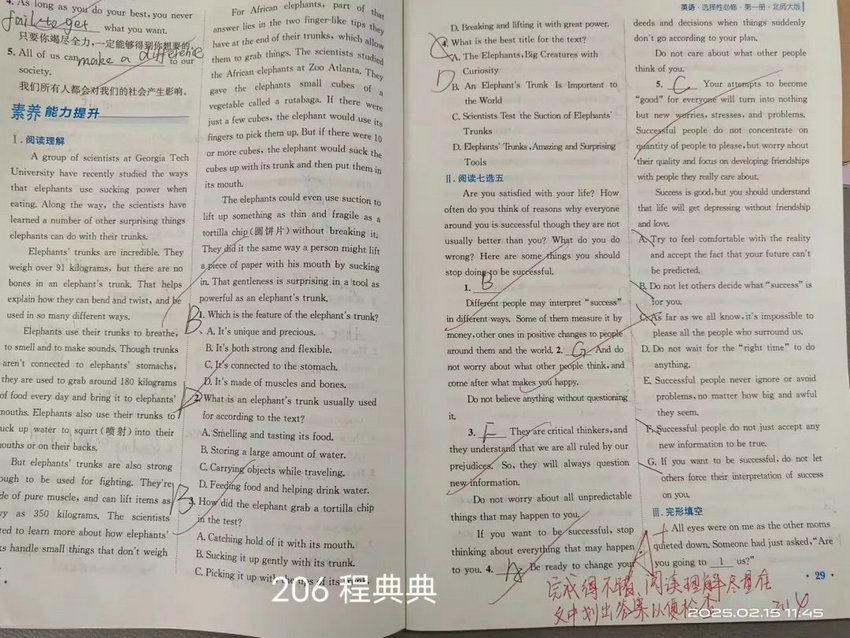 4. As long as you do your best, you never
fail to get what you want.
只要你竭尽全力,一定能够得到你想要的。
5. All of us can make a difference to our
society.
我们所有人都会对我们的社会产生影响。
素养 能力提升
Ⅰ. 阅读理解
A group of scientists at Georgia Tech
University have recently studied the ways
that elephants use sucking power when
eating. Along the way, the scientists have
learned a number of other surprising things
elephants can do with their trunks.
Elephants' trunks are incredible. They
weigh over 91 kilograms, but there are no
bones in an elephant's trunk. That helps
explain how they can bend and twist, and be
used in so many different ways.
Elephants use their trunks to breathe,
to smell and to make sounds. Though trunks
aren't connected to elephants' stomachs,
they are used to grab around 180 kilograms
of food every day and bring it to elephants'
mouths. Elephants also use their trunks to
suck up water to squirt (喷射) into their
mouths or on their backs.
But elephants' trunks are also strong
enough to be used for fighting. They're
made of pure muscle, and can lift items as
as 350 kilograms. The scientists
wanted to learn more about how elephants'
trunks handle small things that don't weigh
For African elephants, part of that
answer lies in the two finger-like tips they
have at the end of their trunks, which allow
them to grab things. The scientists studied
the African elephants at Zoo Atlanta. They
gave the elephants small cubes of a
vegetable called a rutabaga. If there were
just a few cubes, the elephant would use its
fingers to pick them up. But if there were 10
or more cubes, the elephant would suck the
cubes up with its trunk and then put them in
its mouth.
The elephants could even use suction to
lift up something as thin and fragile as a
tortilla chip (圆饼片) without breaking it.
They did it the same way a person might lift
a piece of paper with his mouth by sucking
in. That gentleness is surprising in a tool as
powerful as an elephant's trunk.
B 1. Which is the feature of the elephant's trunk?
A. It's unique and precious.
B. It's both strong and flexible.
C. It's connected to the stomach.
D. It's made of muscles and bones.
D 2. What is an elephant's trunk usually used
for according to the text?
A. Smelling and tasting its food.
B. Storing a large amount of water.
C. Carrying objects while traveling.
D. Feeding food and helping drink water.
B 3. How did the elephant grab a tortilla chip
in the test?
A. Catching hold of it with its mouth.
B. Sucking it up gently with its trunk.
C. Picking it up with the tips of its
206 程典典
英语·选择性必修·第一册·北师大版
D. Breaking and lifting it with great power.
4. What is the best title for the text?
A. The Elephants, Big Creatures with
Curiosity
D B. An Elephant's Trunk Is Important to
the World
C. Scientists Test the Suction of Elephants'
Trunks
D. Elephants' Trunks, Amazing and Surprising
Tools
Ⅱ. 阅读七选五
Are you satisfied with your life? How
often do you think of reasons why everyone
around you is successful though they are not
usually better than you? What do you do
wrong? Here are some things you should
stop doing to be successful.
1. B
Different people may interpret "success"
in different ways. Some of them measure it by
money, other ones in positive changes to people
around them and the world. 2. G And do
not worry about what other people think, and
come after what makes you happy.
Do not believe anything without questioning
it.
3. F They are critical thinkers, and
they understand that we are all ruled by our
prejudices. So, they will always question
new information.
Do not worry about all unpredictable
things that may happen to you.
If you want to be successful, stop
thinking about everything that may happen
to you. 4. A Be ready to change your
deeds and decisions when things suddenly
don't go according to your plan.
Do not care about what other people
think of you.
5. C Your attempts to become
"good" for everyone will turn into nothing
but new worries, stresses, and problems.
Successful people do not concentrate on
quantity of people to please, but worry about
their quality and focus on developing friendships
with people they really care about.
Success is good, but you should understand
that life will get depressing without friendship
and love.
A. Try to feel comfortable with the reality
and accept the fact that your future can't
be predicted.
B. Do not let others decide what "success" is
for you.
C. As far as we all know, it's impossible to
please all the people who surround us.
D. Do not wait for the "right time" to do
anything.
E. Successful people never ignore or avoid
problems, no matter how big and awful
they seem.
F. Successful people do not just accept any
new information to be true.
G. If you want to be successful, do not let
others force their interpretation of success
on you.
Ⅲ. 完形填空
All eyes were on me as the other moms
quieted down. Someone had just asked, "Are
you going to 1 us?"
29
完成得不错,阅读理解尽量在
文中划出答案以便检查
2025.02.15 11:45